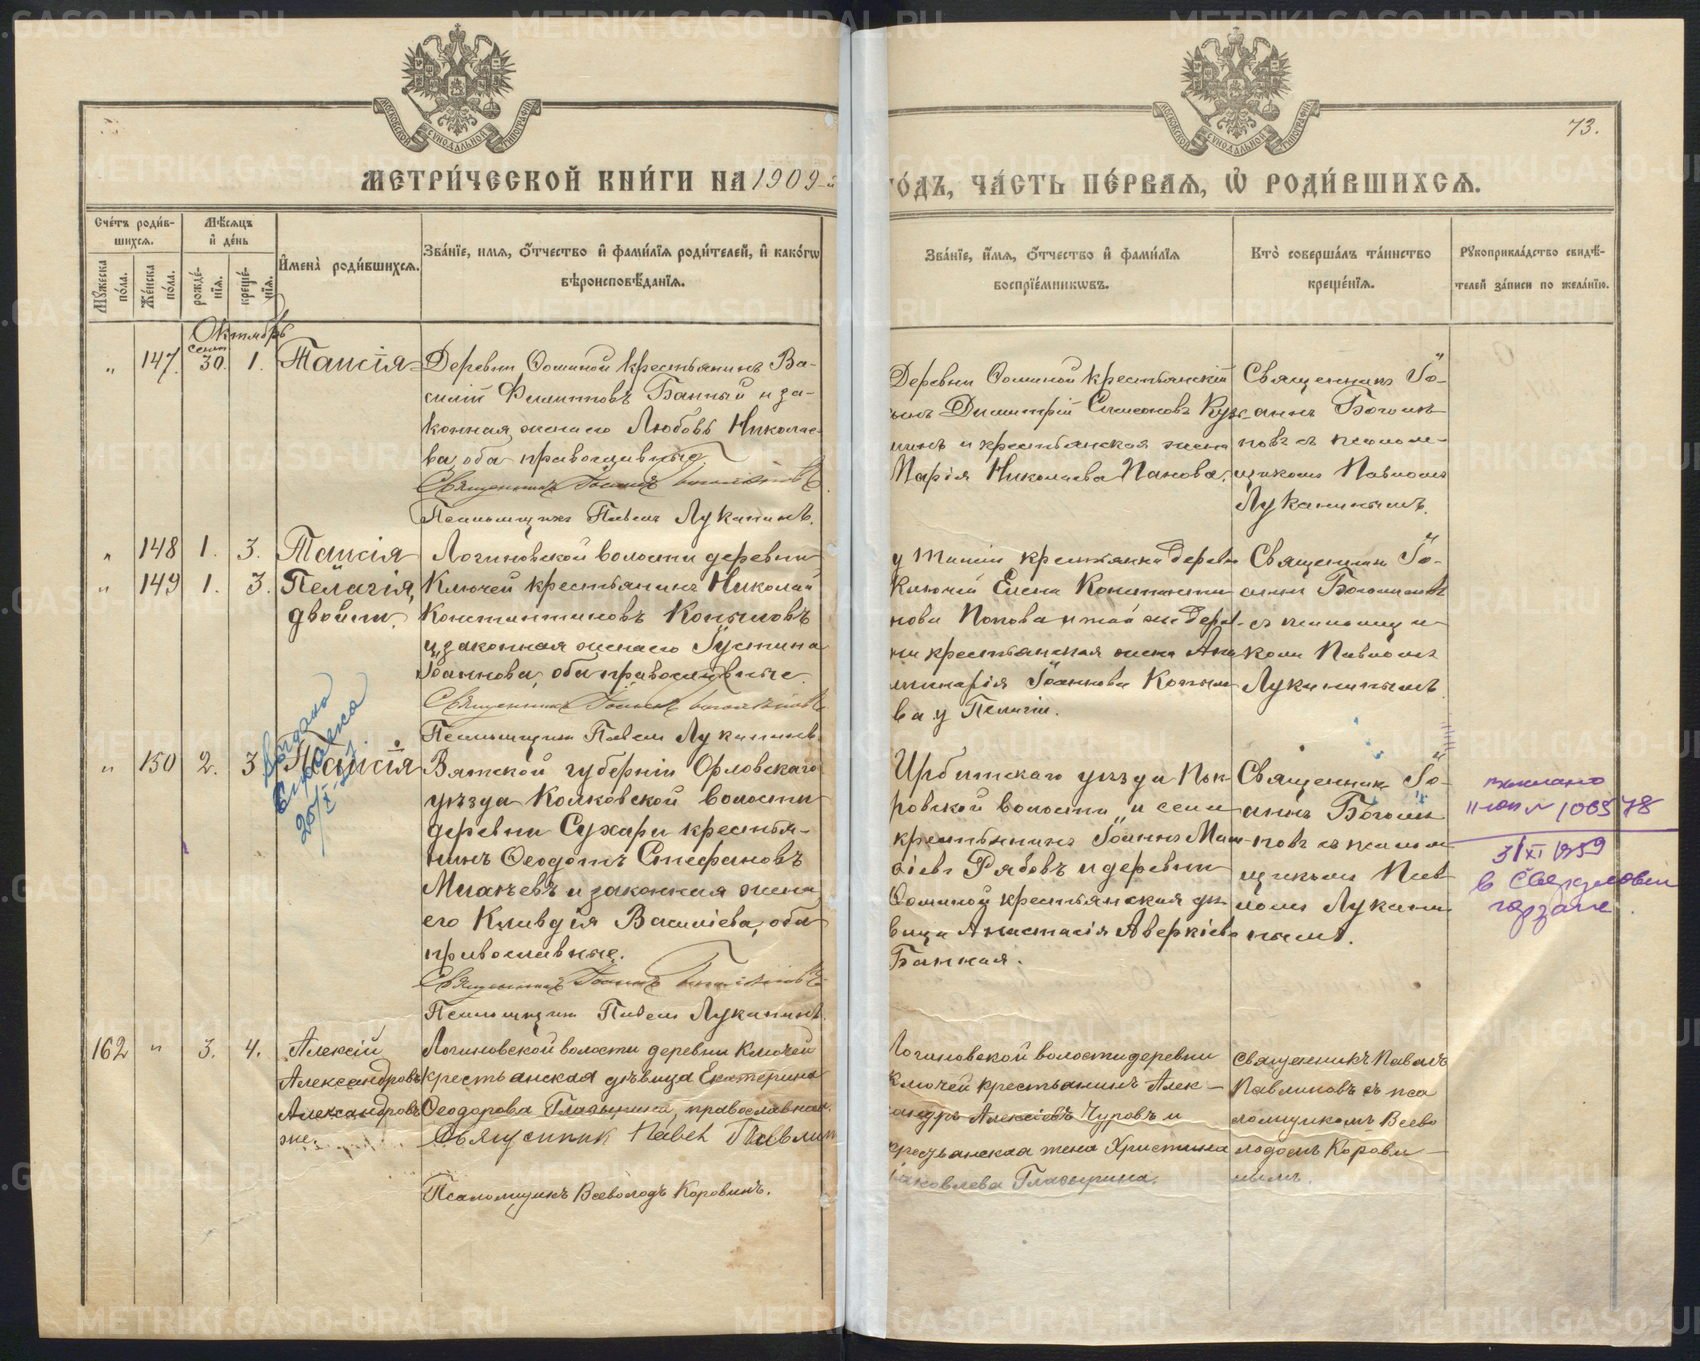 МЕТРИ́ЧЕСКОЙ КНИ́ГИ НА 1909
ГО́ДЪ, ЧА́СТЬ ПЕ́РВАЯ, Ѡ РОДИ́ВШИХСЯ.
73.
Сче́тъ роди́в-
шихся.
Мѣ́сяцъ
и҆ де́нь
И҆мена̀ роди́вшихся.
Зва́нїе, имя, ѻ҆́тчество и҆ фами́лїя роди́телей, и҆ како́гѡ
вѣроисповѣ́данїя.
Мꙋ́жеска
по́ла.
Же́нска
по́ла.
рожде́-
нїя.
креще́-
нїя.
Зва́нїе, и҆́мя, ѻ҆́тчество и҆ фами́лїя
воспрїе́мникѡвъ.
Кто̀ соверша́лъ та́инство
креще́нїя.
Рꙋкоприкла́дство свидѣ́-
телей за́писи по жела́нїю.
Октябрь
сент
" 147. 30. 1. Таисія
Деревни Ѳоминой крестьянинъ Ва-
силій Филипповъ Банный и за-
конная жена его Любовь Николае-
ва, оба православные
Священникъ Іоаннъ
Псаломщикъ Павелъ Луканинъ.
Деревни Ѳоминой крестьянскій
сынъ Димитрій Симеоновъ Куз-
нинъ и крестьянская жена
Марія Николаева Панова.
Священникъ Іо-
аннъ Боголѣ-
повъ съ псалом-
щикомъ Павломъ
Луканинымъ.
" 148 1. 3. Таисія
" 149 1. 3. Пелагія,
двойни.
Логиновской волости деревни
Ключей крестьянинъ Николай
Константиновъ Копыловъ
и законная жена его Іустина
Іоаннова, оба православные.
Священникъ Іоаннъ
Псаломщикъ Павелъ Луканинъ.
у Таисіи крестьянка дерев
Ключей Елена Константи
нова Попова и той же дерев-
ни крестьянская жена Апол
линарія Іоаннова Копыло
ва у Пелагіи.
Священникъ Іо-
аннъ Боголѣповъ
съ псаломщи-
комъ Павломъ
Луканинымъ.
" 150 2. 3 Таисія
Выдана
справка
Вятской губерніи Орловскаго
уѣзда Колковской волости
деревни Сухари крестья-
нинъ Ѳеодотъ Стефановъ
Михѣевъ и законная жена
его Клавдія Васильева, оба
православные.
Священникъ Іоаннъ
Псаломщикъ Павелъ Луканинъ.
Ирбитскаго уѣзда Пок-
ровской волости и села
крестьянинъ Іоаннъ Мат-
ѳіевъ Рябовъ и деревни
Ѳоминой крестьянская дѣ-
вица Анастасія Аверкіева
Банная.
Священникъ Іо-
аннъ Боголѣ-
повъ съ псалом
щикомъ Пав
ломъ Лукани
нымъ.
31/XI 1959
в Свердловск
горзаге
162 " 3. 4. Алексій
Александровъ
Александровъ
же.
Логиновской волости деревни Ключей
крестьянская дѣвица Екатерина
Ѳеодорова Глазырина, православная.
Священникъ Павелъ Павлин
Псаломщикъ Всеволодъ Коровинъ.
Логиновской волости деревни
Ключей крестьянинъ Алек-
сандръ Алексіевъ Чуровъ и
крестьянская жена Христина
Іаковлева Глазырина.
Священникъ Павелъ
Павлиновъ съ пса
ломщикомъ Всево
лодомъ Корови-
нымъ.
METRIKI.GASO-URAL.RU